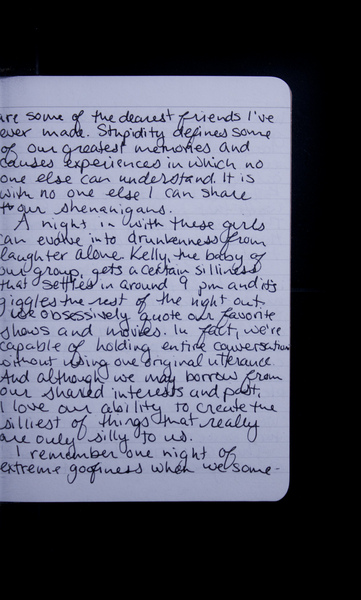 are some of the dearest friends I've
ever made. Stupidity defines some
of our greatest memories and
causes experiences in which no
one else can understand. It is
with no one else I can share
our shenanigans.
A night in with these girls
can evolve into drunkenness from
laughter alone. Kelly, the baby of
our group, gets a certain silliness
that settles in around 9 pm and it's
giggles the rest of the night out.
We obsessively quote our favorite
shows and movies. In fact, we're
capable of holding entire conversations
without using one original utterance.
And although we may borrow from
our shared interests and past,
I love our ability to create the
silliest of things that really
are only silly to us.
I remember one night of
extreme goofiness when we some-